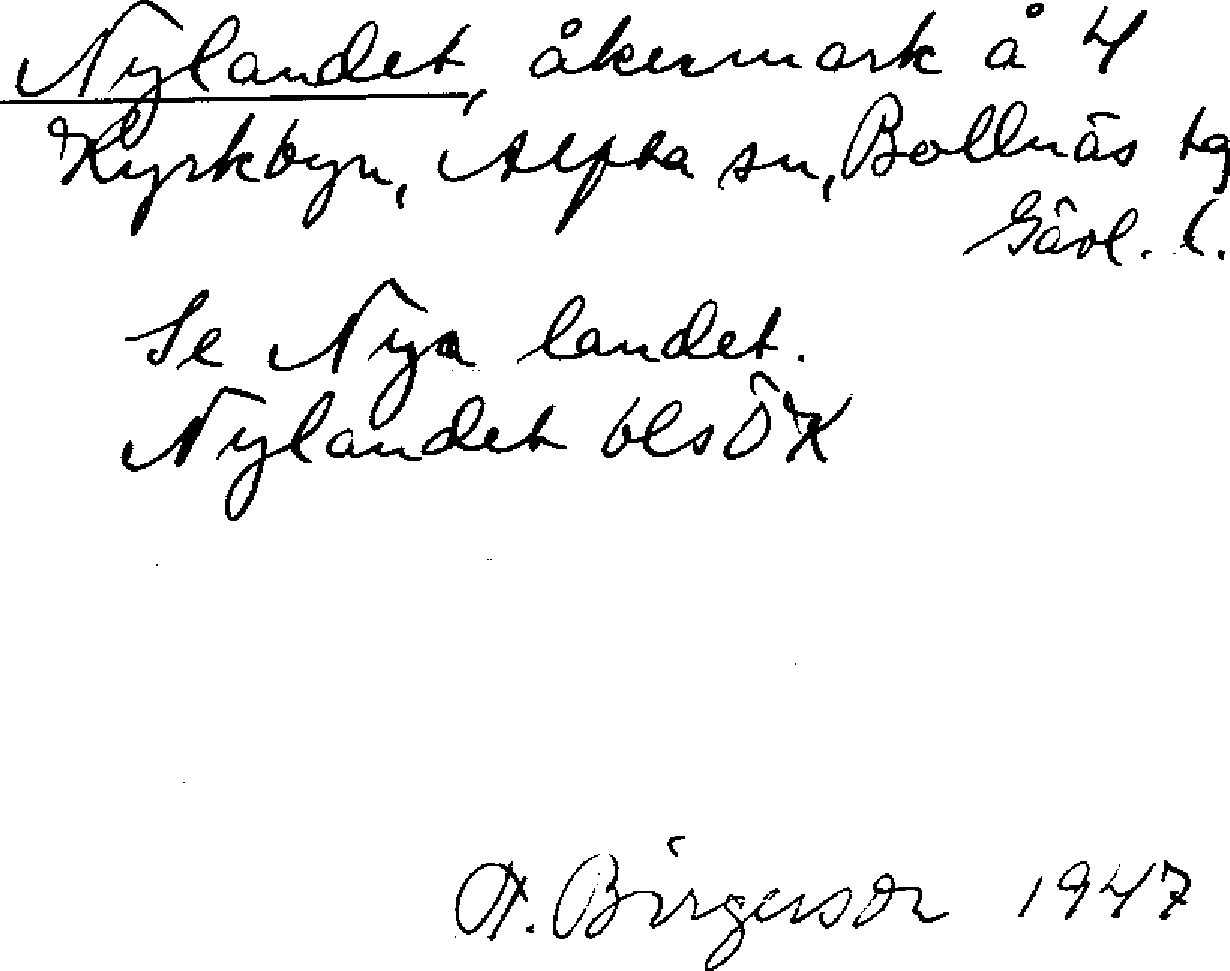 Nylandet, åkermark å 4
Kyrkbyn, Alfta sn, Bollnäs tg
Gävl. l.
Se Nya landet.
Nylandet bls ÖK
A. Birgerson 1947